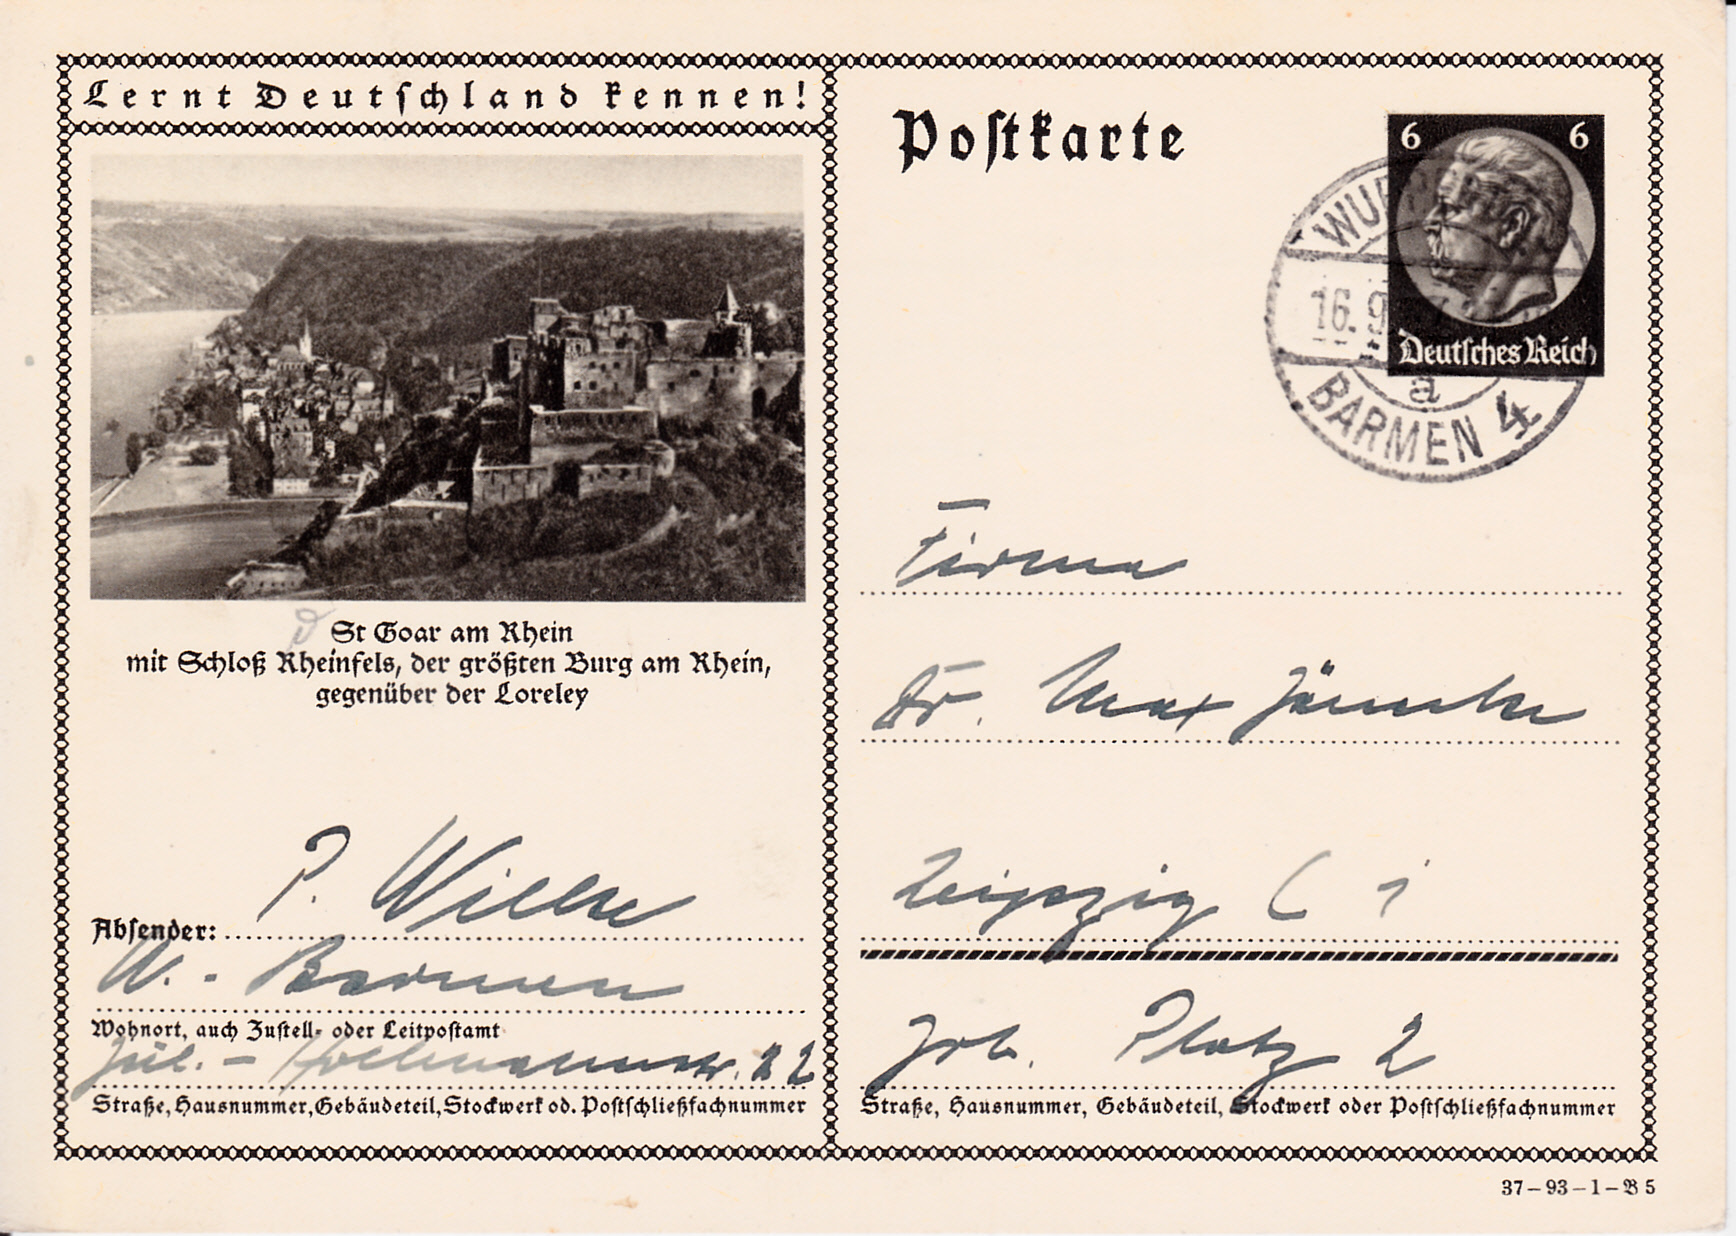 Lernt Deutschland kennen!
St Goar am Rhein
mit Schloß Rheinfels, der größten Burg am Rhein,
gegenüber der Loreley
P. Wilke
Absender:
W.-Barmen
Wohnort, auch Zustell- oder Leitpostamt
Straße, Hausnummer, Gebäudeteil, Stockwerk od. Postschließfachnummer
Postkarte
6 6
Deutsches Reich
16.9
a
BARMEN 4
Firma
Dr. Max Jänecke
Leipzig C 1
Joh. Platz 2
Straße, Hausnummer, Gebäudeteil, Stockwerk oder Postschließfachnummer
37-93-1-B 5